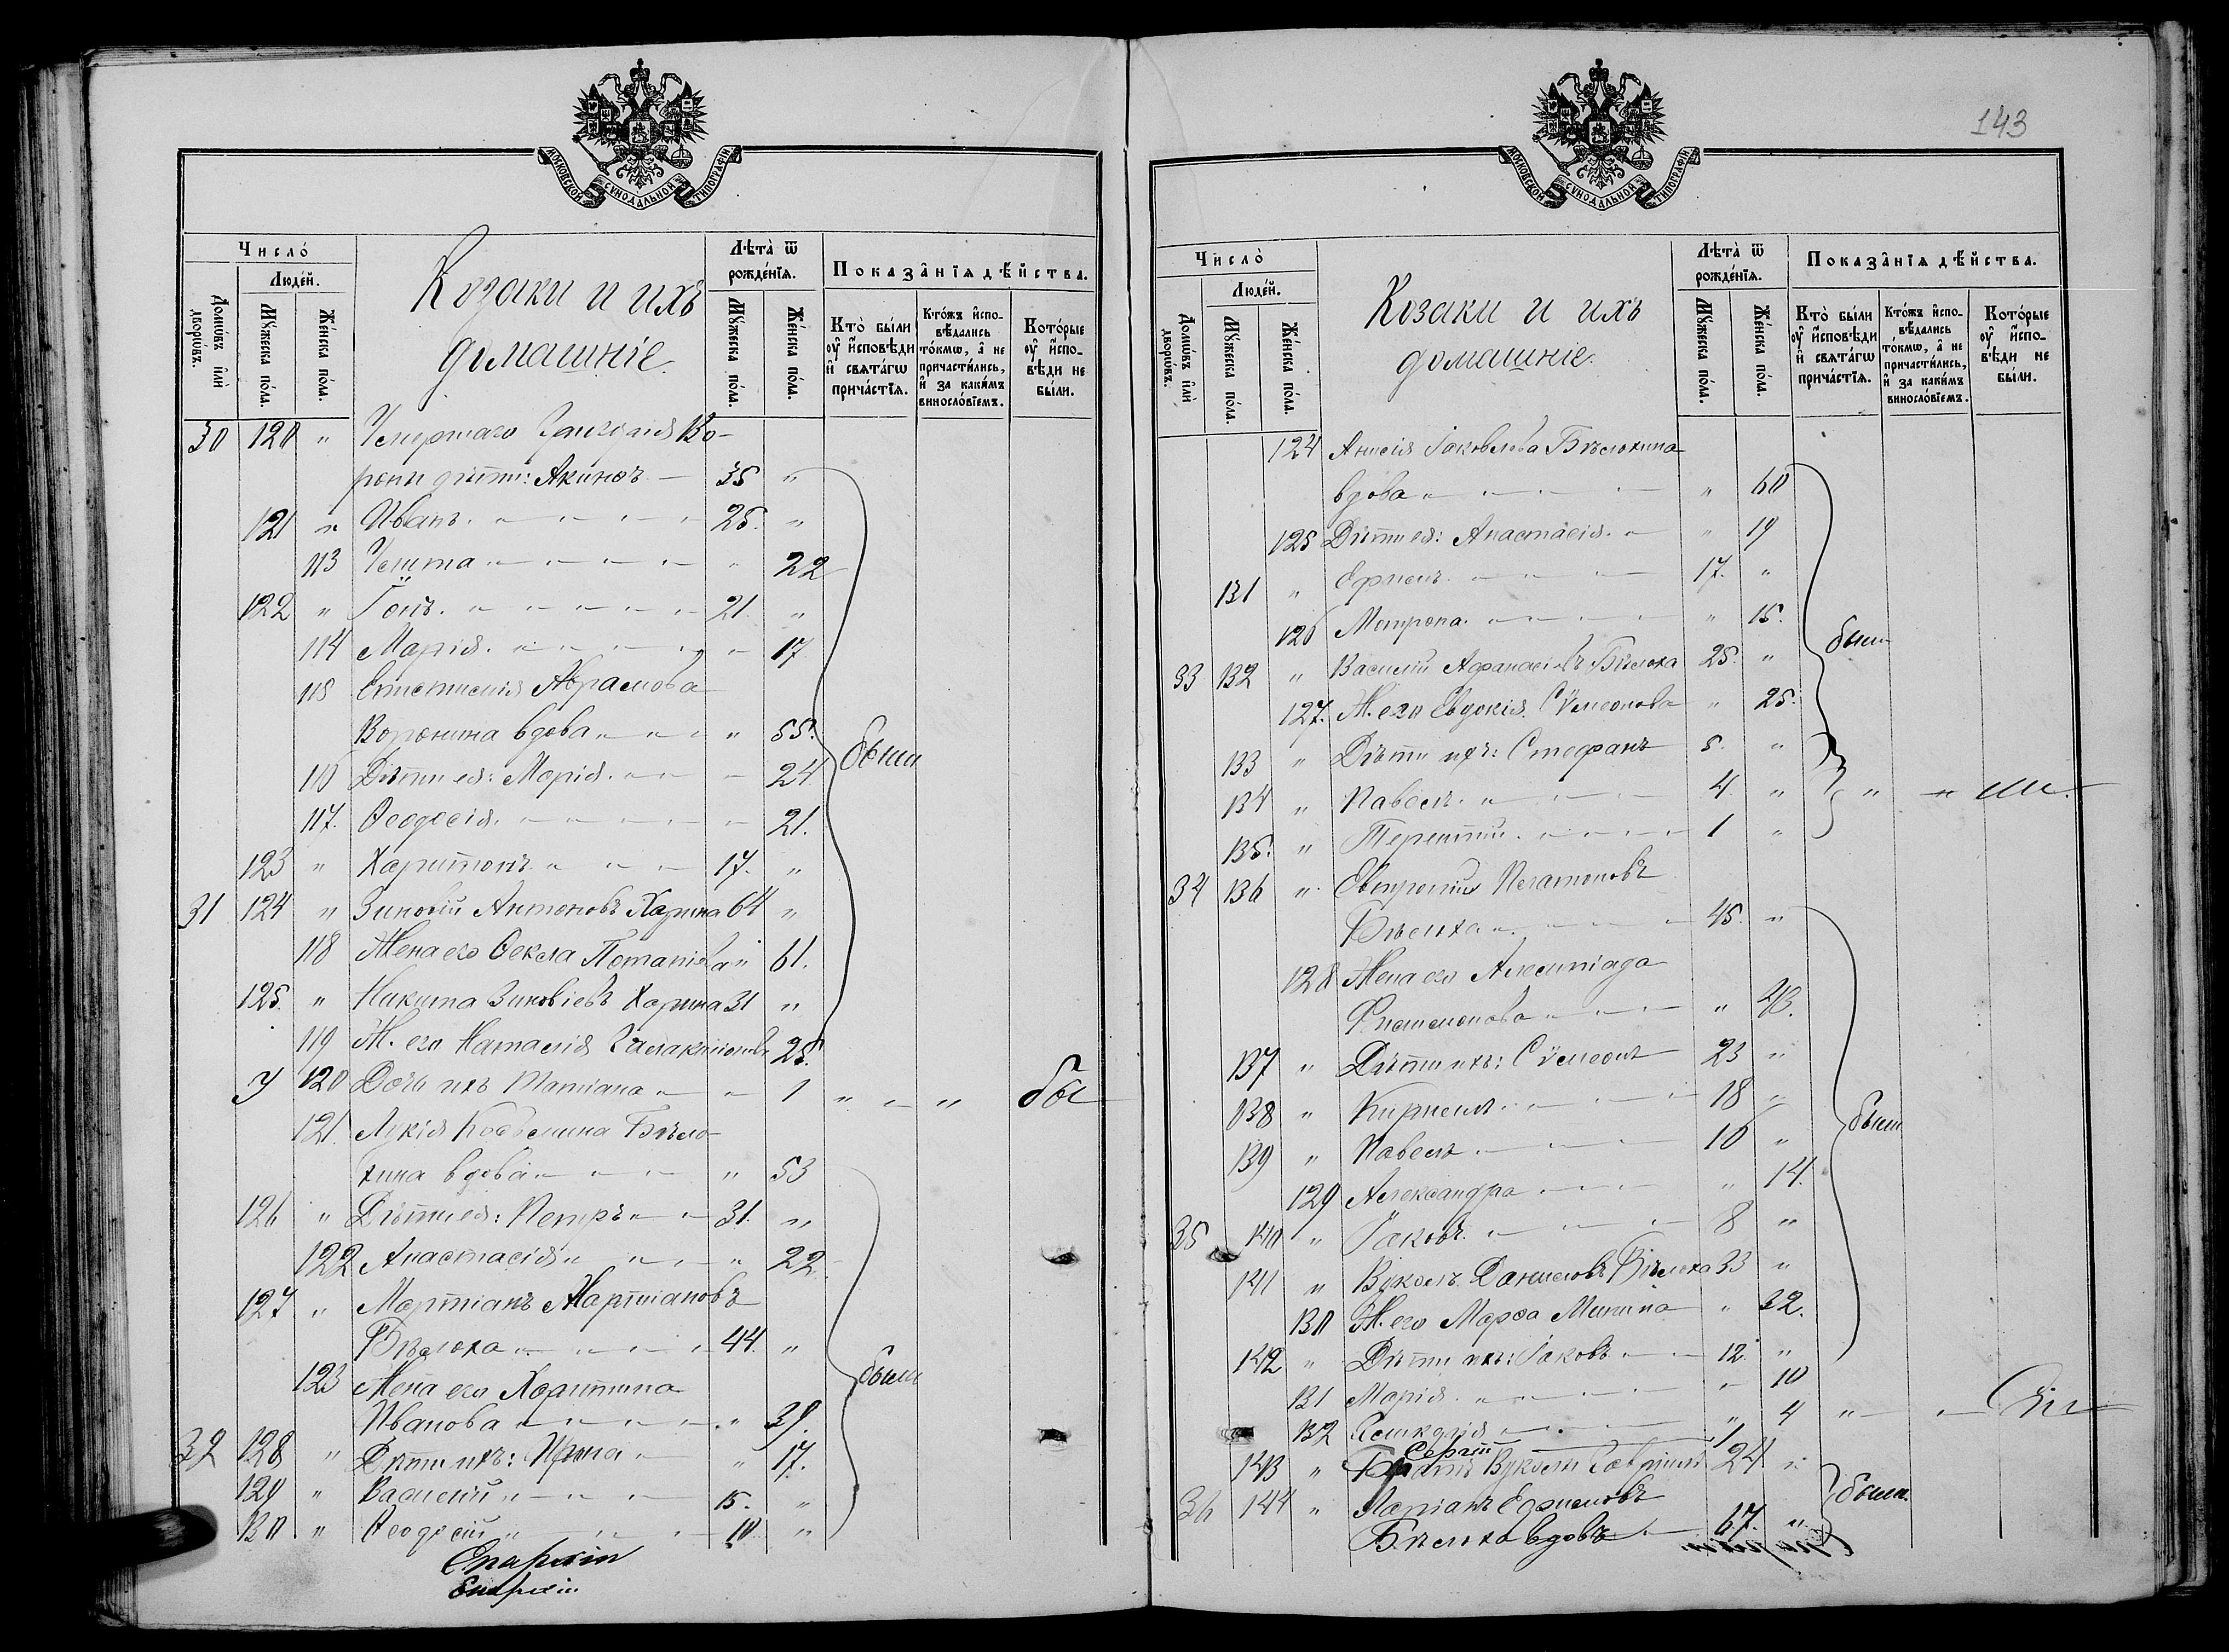 МОСКОВСКОЙ СѴНОДАЛЬНОЙ ТИПОГРАФІИ
Число̀
Люде́й.
Домѡ́въ и҆лѝ дворѡ́въ.
Мꙋ́жеска по́ла.
Же́нска по́ла.
Козаки и ихъ
домашніе.
Лѣта̀ ѿ рожде́нїѧ.
Мꙋ́жеска по́ла.
Же́нска по́ла.
Показа̂нїѧ дѣ́йства.
Кто̀ бы́ли ᲂу҆ и҆сповѣ́ди и҆ свѧта́гѡ прича́стїѧ.
Кто́жъ и҆сповѣ́дались то́кмѡ, а҆ не причасти́лись, и҆ за каки́мъ виносло́вїемъ.
Кото́рые ᲂу҆ и҆сповѣ́ди не бы́ли.
30 120 " Умершаго Григорія Во-
роны дѣти: Акинѳъ 35 "
121 " Иванъ 25. "
113 " 22
122 " 21. "
114 Марія 17
115 Епистимія Абрамова
Воронина вдова " 55.
116 Дѣти ея: Марія 24
были
117. Ѳеодосія 21.
123 " Харитонъ 17. "
31 124 " Зиновій Антоновъ Харина 64 "
118 Жена его Ѳекла Потапіева " 61.
125. " Никита Зиновіевъ Харина 31 "
119 Ж. его Наталія 25.
120 Дочь ихъ Татіана 1 " " бы
121. Лукія Бѣло-
хина вдова " 53
126 " Дѣти ея: Петръ 31. "
122 Анастасія " 22
127 " Мартіанъ Мартіановъ
Бѣлоха 44. "
123 Жена его Харитина
были
Иванова " 39.
32 128 " Дѣти ихъ: Ирина " 17.
129 " Василій 15. "
130 " Ѳеодосій 10. "
Епархіи
Епархіи
143
МОСКОВСКОЙ СѴНОДАЛЬНОЙ ТИПОГРАФІИ
Число̀
Люде́й.
Домѡ́въ и҆лѝ дворѡ́въ.
Мꙋ́жеска по́ла.
Же́нска по́ла.
Козаки и ихъ
домашніе.
Лѣта̀ ѿ рожде́нїѧ.
Мꙋ́жеска по́ла.
Же́нска по́ла.
Показа̂нїѧ дѣ́йства.
Кто̀ бы́ли ᲂу҆ и҆сповѣ́ди и҆ свѧта́гѡ прича́стїѧ.
Кто́жъ и҆сповѣ́дались то́кмѡ, а҆ не причасти́лись, и҆ за каки́мъ виносло́вїемъ.
Кото́рые ᲂу҆ и҆сповѣ́ди не бы́ли.
124 Анисія Іаковлева Бѣлохина
вдова " 60
125 Дѣти ея: Анастасія " 19
131 " Ефремъ 17. "
126 Матрона " 15.
были
33 132 " Василій Аѳанасіевъ Бѣлоха 25. "
127. Ж. его Евдокія Сѵмеонова " 25.
133 " Дѣти ихъ: Стефанъ 5. "
134 " Павелъ 4 " " "
135. " Терентій 1 "
34 136 " Евтропій Платоновъ
Бѣлоха 45. "
128 Жена его Алимпіада
Филимонова " 43.
137 " Дѣти ихъ: Сѵмеонъ 23 "
138 " Кириллъ 18 "
были
139 " Павелъ 16 "
129 Александра " 14.
35 140 " Іаковъ 8 "
141 " Вуколъ Даниловъ Бѣлоха 33 "
130 Ж. его Марѳа Минина " 32.
142 " Дѣти ихъ: Іаковъ 12. "
131 Марія " 10
132 " 4 "
143 " Братъ Вукола Гавріилъ 24 "
36 144 " Маріанъ Ефремовъ
были.
Бѣлоха вдовъ 67. "